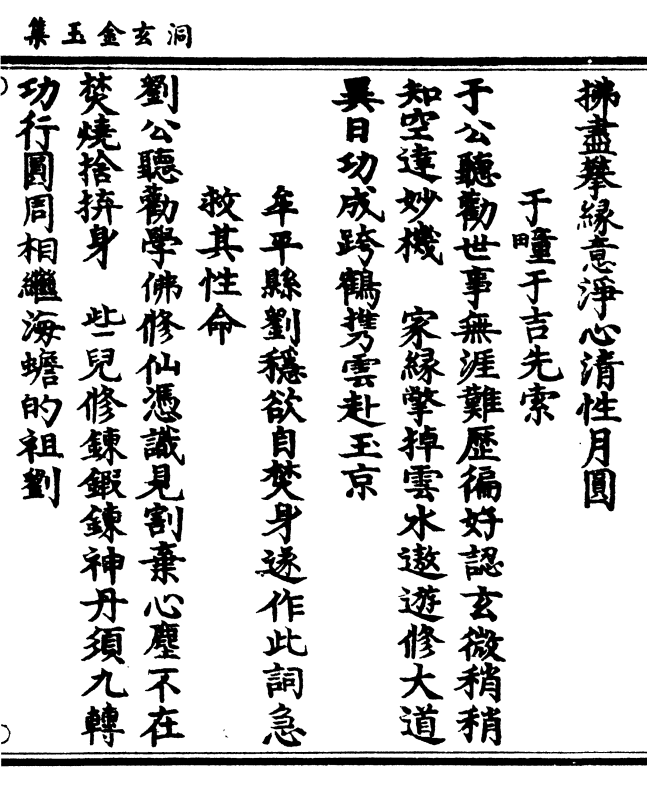 洞玄金玉集
拂盡攀緣意淨心清性月圓
于疃于吉先索
于公聽勸世事無涯難歷徧好認玄微稍稍
知空達妙機　家緣擎掉雲水遨遊修大道
異日功成跨鶴携雲赴玉京
牟平縣劉穩欲自焚身遂作此詞急
救其性命
劉公聽勸學佛修仙憑識見割棄心塵不在
焚燒捨㨹身　些兒修鍊鍜鍊神丹須九轉
功行圓周相繼海蟾的祖劉